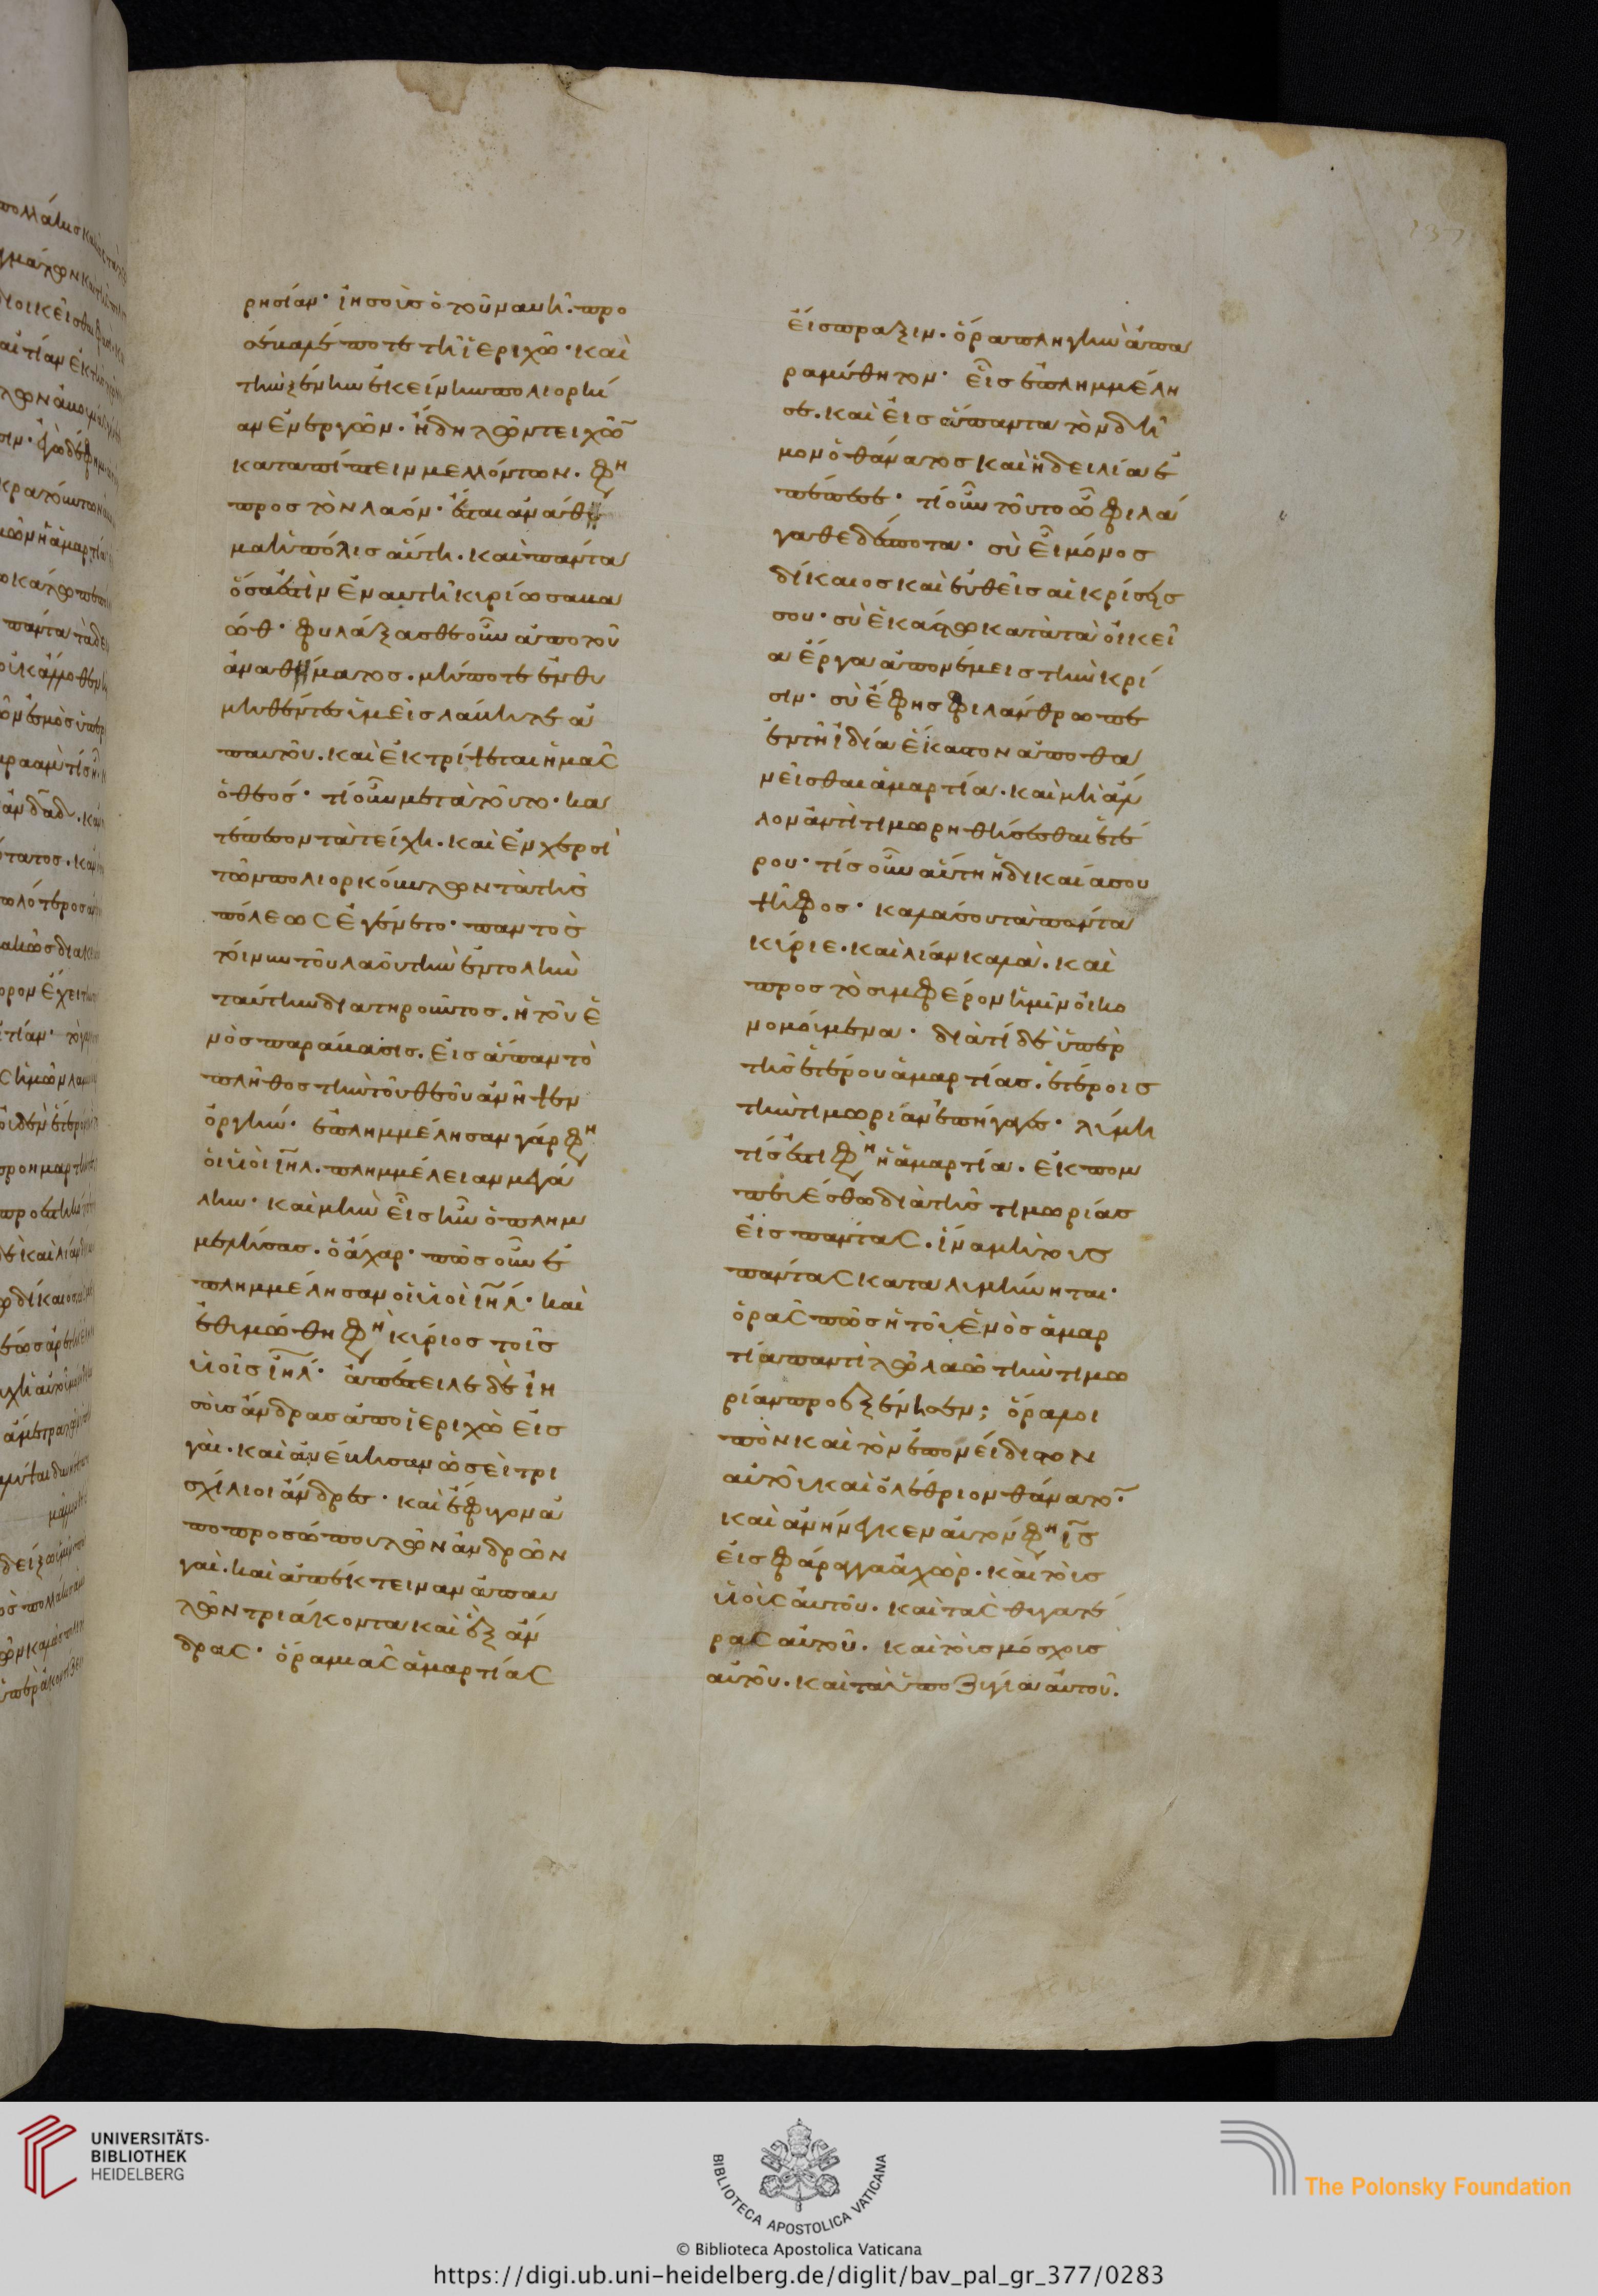 ρησίαν· ἰησοῦς ὁ τοῦ ναυῆ. προ
σέκαμέ ποτε τῆ ἱεριχῶ· καὶ
τὴν ξένην ἐκείνην πολιορκί
αν ἐνεργῶν. ἤδη τῶν τειχῶ̅
καταπίπτειν μελλόντων. φη
πρὸς τὸν λαόν· ἔσται ἀνάθε
μα ἡ πόλις αὕτη. καὶ πάντα
ὅσα ἐστὶν ἐν αὐτῆ κυρίω σαβα
ώθ· φυλάξασθε οὖν ἀπὸ τοῦ
ἀναθέματος. μήποτε ἐνθυ
μηθέντες ὑμεῖς λάβητε ἀ
π' αὐτοῦ. καὶ ἐκτρίψεται ἡμᾶς
ὁ θεός· τί οὖν μετὰ τοῦτο· κα
τέπεσον τὰ τείχη. καὶ ἐν χερσὶ
τῶν πολιορκούντων τὰ τῆς
πόλεως ἐγένετο· παντὸς
τοίνυν τοῦ λαοῦ τὴν ἐντολὴν
ταύτην διατηροῦντος. ἡ τοῦ ἑ
νὸς παράβασις. εἰς ἅπαν τὸ
πλῆθος τὴν τοῦ θεοῦ ἀνῆψεν
ὀργήν· ἐπλημμέλησαν γάρ φη
οἱ υἱοὶ ιη̅λ. πλημμέλειαν μεγά
λην· καὶ μὴν εἷς ἦν ὁ πλημ
μελήσας. ὁ ἄχαρ· πῶς οὖν ἐ
πλημμέλησαν οἱ υἱοὶ ιη̅λ· καὶ
ἐθυμώθη φη κύριος τοῖς
υἱοῖς ιη̅λ· ἀπέστειλε δὲ ἰη
σοῦς ἄνδρας ἀπὸ ἱεριχὼ εἰς
γαὶ. καὶ ἀνέβησαν ὡσεὶ τρι
σχίλιοι ἄνδρες· καὶ ἔφυγον ἀ
πὸ προσώπου τῶν ἀνδρῶν
γαὶ. καὶ ἀπέκτειναν ἀπ' αὐ
τῶν τριάκοντα καὶ ἓξ ἄν
δρας· ὅρα μιᾶς ἁμαρτίας
εἴσπραξιν. ὅρα πληγὴν ἀπα
ραμύθητον· εἷς ἐπλημμέλη
σε. καὶ εἰς ἅπαντα τὸν δῆ
μον ὁ θάνατος καὶ ἡ δειλία ἐ
πέπεσε· τί οὖν τοῦτο ὦ φιλά
γαθε δέσποτα· σὺ εἶ μόνος
δίκαιος καὶ εὐθεῖς αἱ κρίσεις
σου· σὺ ἑκάστω κατὰ τὰ οἰκεῖ
α ἔργα ἀπονέμεις τὴν κρί
σιν· σὺ ἔφης φιλάνθρωπε
ἐν τῆ ἰδία ἕκαστον ἀποθα
νεῖσθαι ἁμαρτία. καὶ μὴ ἄλ
λον ἀντὶ τιμωρηθήσεσθαι ἑτέ
ρου· τίς οὖν αὕτη ἡ δικαία σου
ψῆφος· καλὰ σου τὰ πάντα
κύριε. καὶ λίαν καλὰ. καὶ
πρὸς τὸ συμφέρον ἡμῖν οἰκο
νομούμενα· διὰ τί δὲ ὑπὲρ
τῆς ἑτέρου ἁμαρτίας. ἑτέροις
τὴν τιμωρίαν ἐπήγαγες· λύμη
τίς ἐστι φη ἡ ἁμαρτία. ἐκπομ
πευέσθω διὰ τῆς τιμωρίας
εἰς πάντας. ἵνα μὴ τοὺς
πάντας καταλυμήνηται·
ὁρᾶς πῶς ἡ τοῦ ἑνὸς ἁμαρ
τία παντὶ τῶ λαῶ τὴν τιμω
ρίαν προεξένησεν; ὅρα μοι
τὸν καὶ τὸν ἐπονείδιστον
αὐτοῦ καὶ ὀλέθριον θάνατο̅·
καὶ ἀνήνεγκεν αὐτόν φη ι̅ς
εἰς φάραγγα ἀχώρ. καὶ τοὺς
υἱοὺς αὐτοῦ. καὶ τὰς θυγατέ
ρας αὐτοῦ. καὶ τοὺς μόσχους
αὐτοῦ. καὶ τὰ ὑποζύγια αὐτοῦ.
UNIVERSITÄTS-
BIBLIOTHEK
HEIDELBERG
BIBLIOTECA APOSTOLICA VATICANA
© Biblioteca Apostolica Vaticana
The Polonsky Foundation
https://digi.ub.uni-heidelberg.de/diglit/bav_pal_gr_377/0283